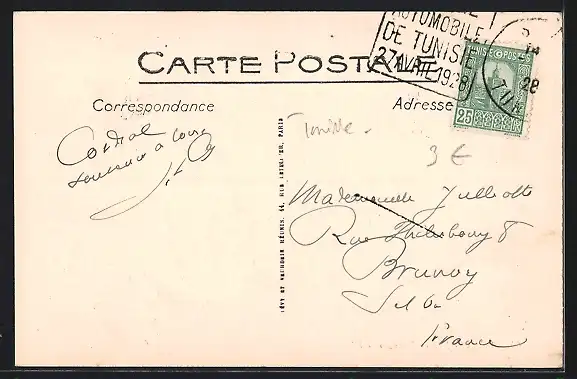 AUTOMOBILE
DE TUNISIE
27 AVRIL 1928
TUNISIE POSTES
25
28
TUN
CARTE POSTALE
Correspondance
Adresse
Tunisie.
3 €
Cordial
souvenir à tous
LÉVY ET NEURDEIN RÉUNIS, 44, RUE LETELLIER, PARIS
Mademoiselle
Rue 8
Brunoy
France